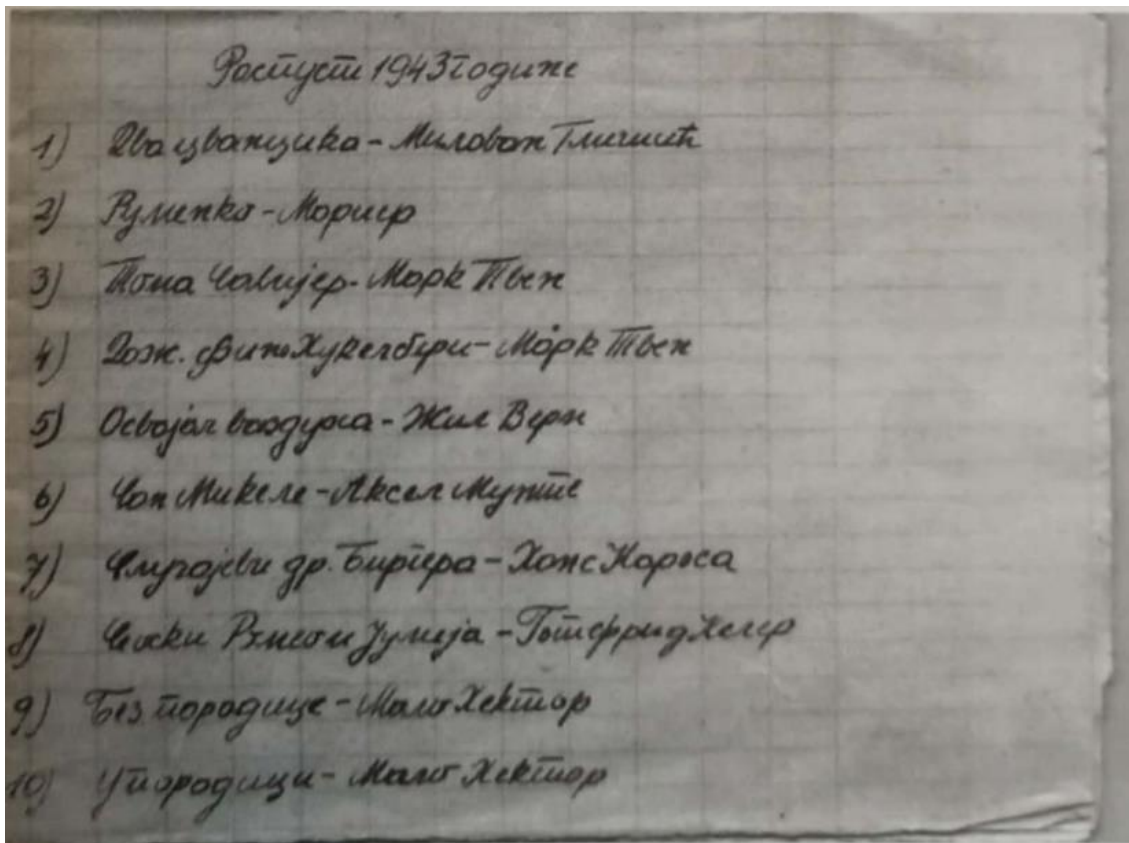 Распуст 1943 године
1) Два цванцика - Милован Глишић
2) Руменко - Мориер
3) Тома Савијер - Марк Твен
4) Дож. Фина Хуклбери - Марк Твен
5) Освајач ваздуха - Жил Верн
6) Сан Микеле - Аксел Мунте
7) Случајеви др. Биргера - Ханс Кароса
8) Сеоски Ромео и Јулија - Готфрид Келер
9) Без породице - Мало Хектор
10) У породици - Мало Хектор